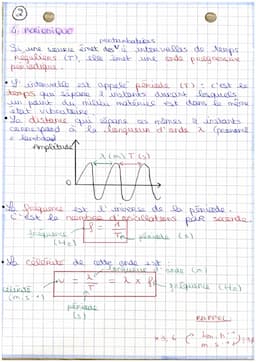 ②
périodique
perturbations
Si une source émet des à intervalles de temps
réguliers (T), elle émet une onde progressive
périodique.
• L'intervalle est appelé période (T) : c'est le
temps qui sépare 2 instants durant lesquels
un point du milieu matériel est dans le même
état vibratoire.
• La distance qui sépare ces mêmes 2 instants
correspond à la longueur d'onde λ (prononcé
Amplitude
λ (m) T (s)
0
• La fréquence est l'inverse de la période.
C'est le nombre d'oscillations par seconde.
fréquence (Hz)
f = 1/T
période (s)
• La célérité de cette onde est :
longueur d'onde (m)
célérité (m.s⁻¹)
v = λ/T = λ × f
fréquence (Hz)
période (s)
RAPPEL
× 3,6 ( km.h⁻¹
m.s⁻¹